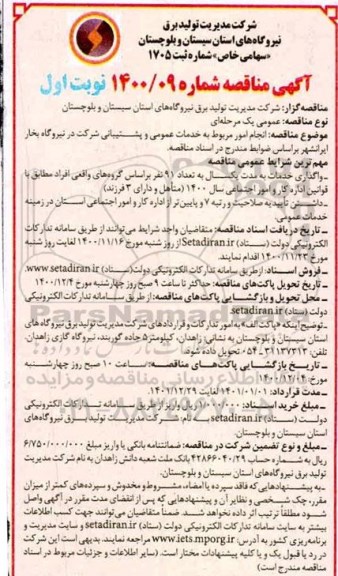 شرکت مدیریت تولید برق
نیروگاه‌های استان سیستان و بلوچستان
«سهامی خاص» شماره ثبت ۱۷۰۵
آگهی مناقصه شماره ۱۴۰۰/۰۹ نوبت اول
مناقصه‌گزار: شرکت مدیریت تولید برق نیروگاه‌های استان سیستان و بلوچستان
نوع مناقصه: عمومی یک مرحله‌ای
موضوع مناقصه: انجام امور مربوط به خدمات عمومی و پشتیبانی شرکت در نیروگاه بخار
ایرانشهر براساس ضوابط مندرج در اسناد مناقصه.
مهم‌ترین شرایط عمومی مناقصه
ـ واگذاری خدمات به مدت یکسال به تعداد ۹۱ نفر براساس گروه‌های واقعی افراد مطابق با
قوانین اداره کار و امور اجتماعی سال ۱۴۰۰ (متأهل و دارای ۲ فرزند)
ـ داشتن تأییدیه صلاحیت و رتبه ۷ و پایین‌تر از اداره کار و امور اجتماعی استان در زمینه
خدمات عمومی.
ـ تاریخ دریافت اسناد مناقصه: متقاضیان واجد شرایط می‌توانند از طریق سامانه تدارکات
الکترونیکی دولت (ستاد) Setadiran.ir از روز شنبه مورخ ۱۴۰۰/۱۱/۱۶ لغایت روز شنبه
مورخ ۱۴۰۰/۱۱/۲۳ اقدام نمایند.
ـ فروش اسناد: از طریق سامانه تدارکات الکترونیکی دولت (ستاد) www.setadiran.ir
ـ تاریخ تحویل پاکت‌های مناقصه: حداکثر تا ساعت ۹ صبح روز چهارشنبه مورخ ۱۴۰۰/۱۲/۴
ـ محل تحویل و بازگشایی پاکت‌های مناقصه: از طریق سامانه تدارکات الکترونیکی
دولت (ستاد) setadiran.ir
ـ توضیح اینکه «پاکت الف» به امور تدارکات و قراردادهای شرکت مدیریت تولید برق نیروگاه‌های
استان سیستان و بلوچستان به نشانی: زاهدان، کیلومتر ۵ جاده گوربند، نیروگاه گازی زاهدان
تلفن: ۳۱۱۳۷۲۱۳-۰۵۴ تحویل داده شود.
ـ تاریخ بازگشایی پاکت‌های مناقصه: ساعت ۱۰ صبح روز چهارشنبه
مورخ: ۱۴۰۰/۱۲/۰۴
ـ مدت قرارداد: ۱۴۰۱/۰۱/۰۱ لغایت ۱۴۰۱/۱۲/۲۹
ـ مبلغ خرید اسناد: ۱/۰۰۰/۰۰۰ ریال واریز از طریق سامانه تدارکات الکترونیکی
دولت (ستاد) setadiran.ir به نام شرکت مدیریت تولید برق نیروگاه‌های
استان سیستان و بلوچستان
ـ مبلغ و نوع تضمین شرکت در مناقصه: ضمانتنامه بانکی یا واریز مبلغ ۶/۷۵۰/۰۰۰/۰۰۰
ریال به شماره حساب بانک ملت شعبه دانش زاهدان به نام شرکت مدیریت
تولید برق نیروگاه‌های استان سیستان و بلوچستان.
ـ به پیشنهادهایی که فاقد سپرده یا امضاء، مشروط و مخدوش و سپرده‌های کمتر از میزان
مقرر، چک شخصی و نظایر آن و پیشنهادهایی که پس از انقضای مدت مقرر در آگهی واصل
شود مطلقاً ترتیب اثر داده نخواهد شد. ضمناً متقاضیان می‌توانند جهت کسب اطلاعات
بیشتر به سایت سامانه تدارکات الکترونیکی دولت (ستاد) setadiran.ir و سایت مدیریت و
برنامه‌ریزی کشور به آدرس: www.iets.mporg.ir مراجعه نمایند. بدیهی است این شرکت
در رد یا قبول یک و یا کلیه پیشنهادات مختار است. (سایر اطلاعات و جزئیات مربوط در اسناد
مناقصه مندرج است)